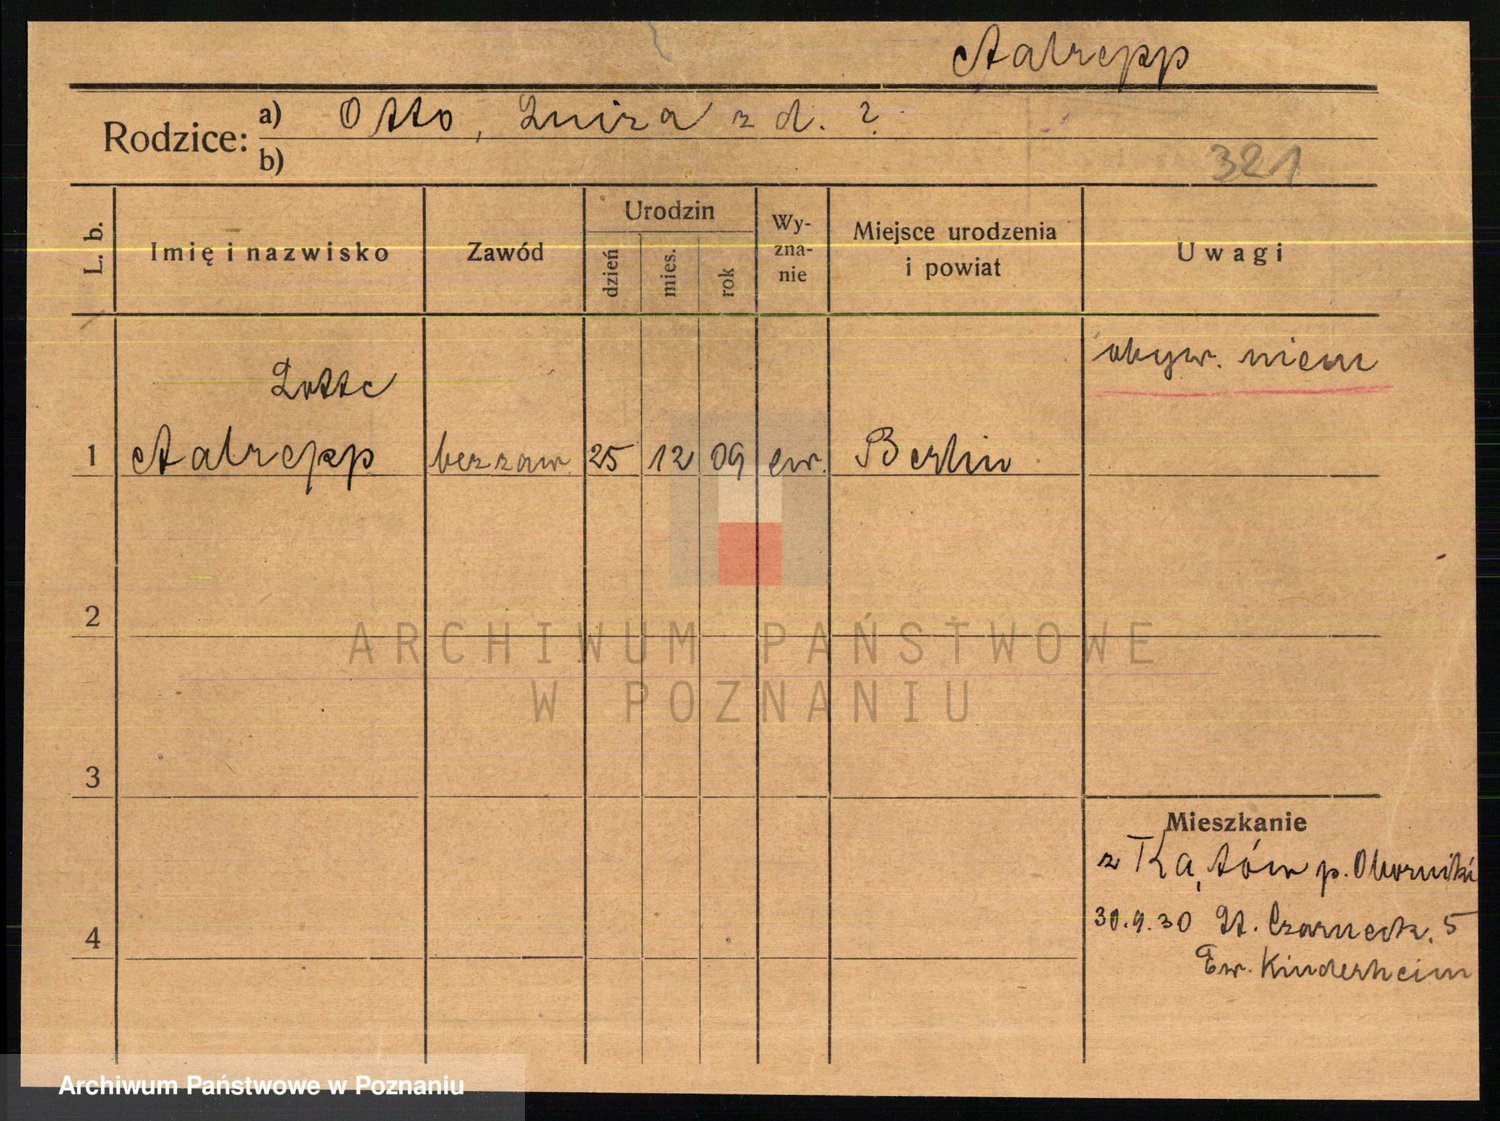 Aalrepp
Rodzice:
a) Otto, Luiza z d. ?
b)
321
L. b.
Imię i nazwisko
Zawód
Urodzin
dzień
mies.
rok
Wy-
zna-
nie
Miejsce urodzenia
i powiat
Uwagi
obyw. niem
Lotte
1 Aalrepp bez zaw. 25 12 09 ew. Berlin
2
3
4
Mieszkanie
z Kątów p. Oborniki
30.9.30 St. Czarneck. 5
Ew. Kinderheim
ARCHIWUM PAŃSTWOWE
W POZNANIU
Archiwum Państwowe w Poznaniu